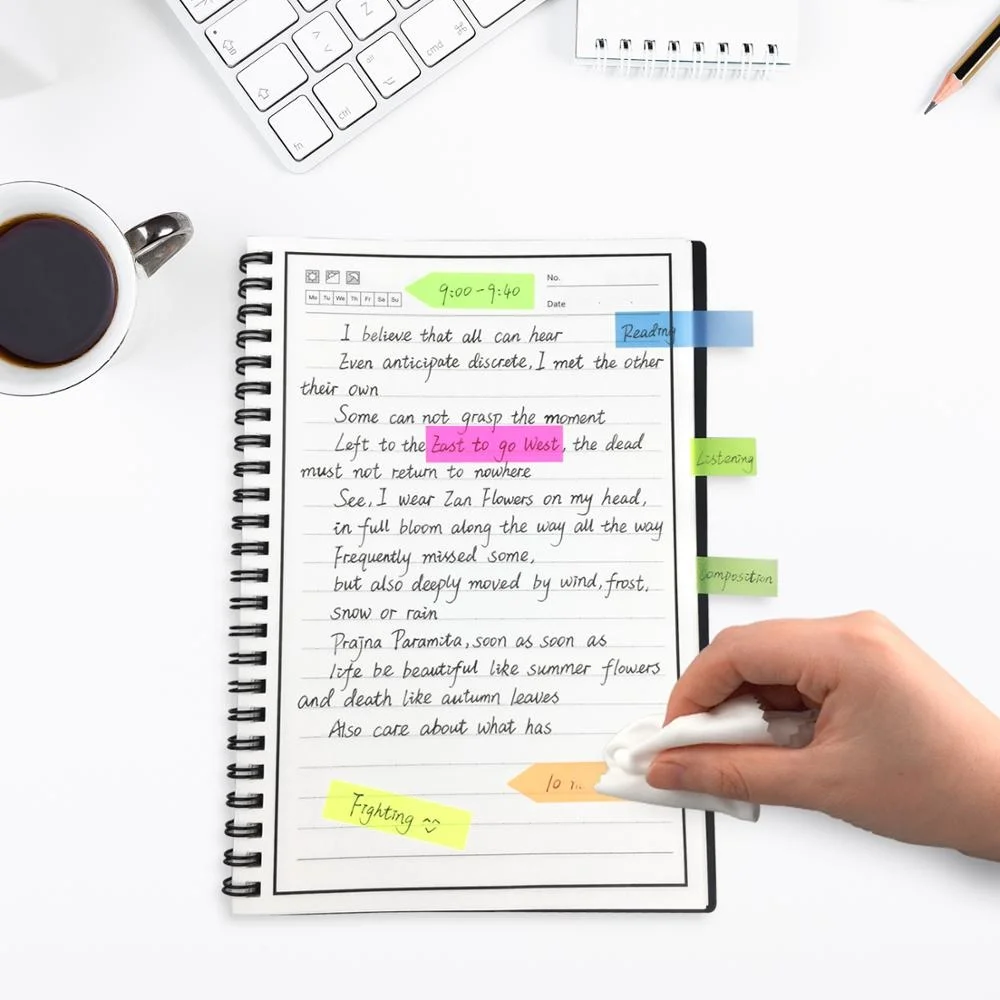 Z
alt
cmd
ctrl
fn
9:00-9:40
No.
Mo Tu We Th Fr Sa Su
Date
Reading
I believe that all can hear
Even anticipate discrete, I met the other
their own
Some can not grasp the moment
Left to the East to go West, the dead
must not return to nowhere
Listening
See, I wear Zan Flowers on my head,
in full bloom along the way all the way
Frequently missed some,
but also deeply moved by wind, frost,
Composition
snow or rain
Prajna Paramita, soon as soon as
life be beautiful like summer flowers
and death like autumn leaves
Also care about what has
10
Fighting ^^